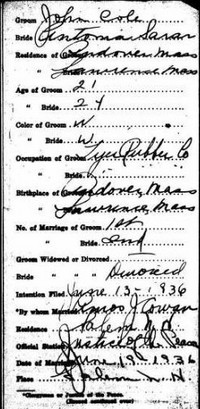 Groom John Cole
Bride Antonia Saran
Residence of Groom Andover Mass
" Lawrence Mass
Age of Groom 21
" Bride 24
Color of Groom W
" Bride W
Occupation of Groom Tyer Rubber Co
" Bride "
Birthplace of Groom Andover Mass
" Lawrence Mass
No. of Marriage of Groom 1st
" Bride 2nd
Groom Widowed or Divorced
Bride " " Divorced
Intention Filed June 13-1936
*By whom Married James J Cowan
Residence Salem N.H.
Official Station Justice of the Peace
Date of Marriage June 19 1936
Place Salem N.H
*Clergyman or Justice of the Peace.